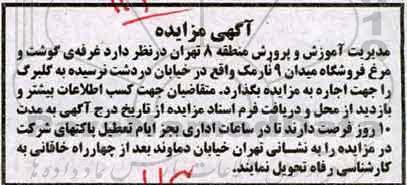 آگهی مزایده
مدیریت آموزش و پرورش منطقه ۸ تهران درنظر دارد غرفه‌ی گوشت و
مرغ فروشگاه میدان ۹ نارمک واقع در خیابان دردشت نرسیده به گلبرگ
را جهت اجاره به مزایده بگذارد. متقاضیان جهت کسب اطلاعات بیشتر و
بازدید از محل و دریافت فرم اسناد مزایده از تاریخ درج آگهی به مدت
۱۰ روز فرصت دارند تا در ساعات اداری بجز ایام تعطیل پاکتهای شرکت
در مزایده را به نشانی تهران خیابان دماوند بعد از چهارراه خاقانی به
کارشناسی رفاه تحویل نمایند.